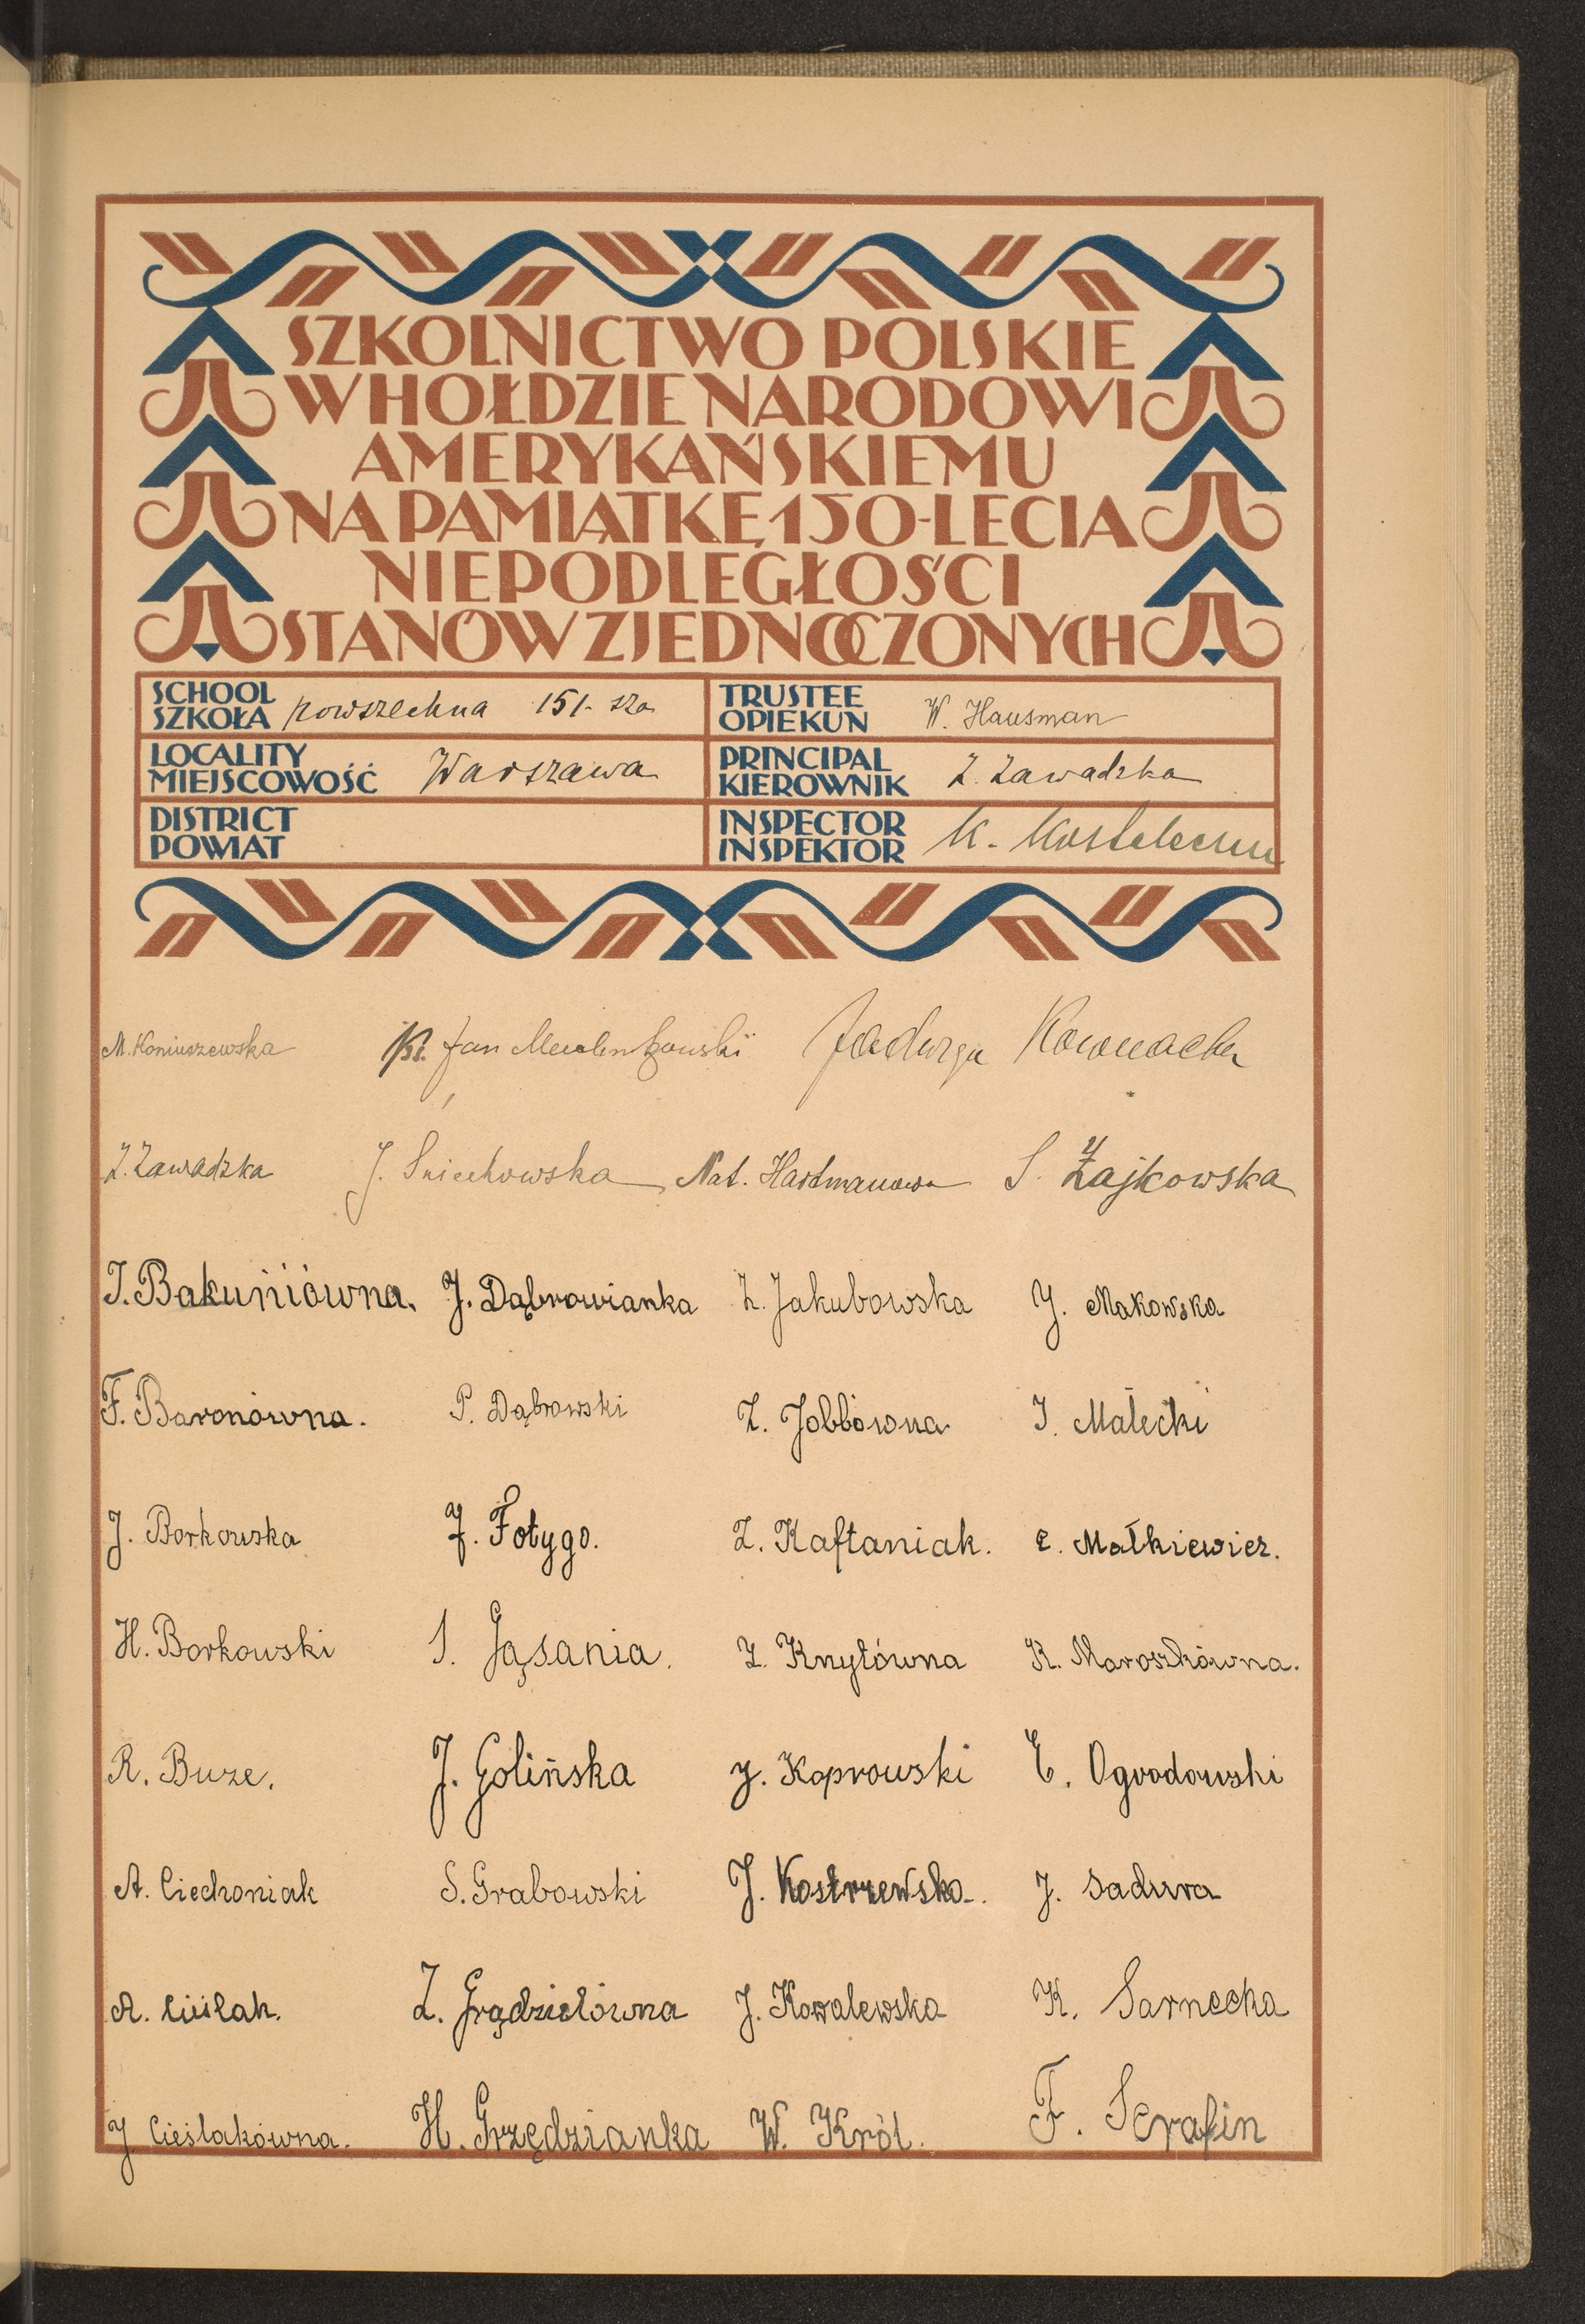 SZKOLNICTWO POLSKIE
W HOŁDZIE NARODOWI
AMERYKAŃSKIEMU
NA PAMIĄTKĘ 150-LECIA
NIEPODLEGŁOŚCI
STANÓW ZJEDNOCZONYCH
SCHOOL
SZKOŁA powszechna 151-sza
TRUSTEE
OPIEKUN W. Hausman
LOCALITY
MIEJSCOWOŚĆ Warszawa
PRINCIPAL
KIEROWNIK Z. Zawadzka
DISTRICT
POWIAT
INSPECTOR
INSPEKTOR K.
M. Koniuszewska Ks. Jan Jadwiga Kownacka
Z. Zawadzka J. Śniechowska Nat. Hartmanowa S. Żajkowska
I. Bakuniówna. J. Dąbrowianka Z. Jakubowska J. Makowska
F. Baronówna. P. Dąbrowski Z. Jobbówna J. Małecki
J. Borkowska J. Fotygo. Z. Kaftaniak. E. Małkiewicz.
H. Borkowski S. Gąsania. Z. Knytówna R. Maroszkówna.
R. Buze. J. Golińska J. Koprowski E. Ogrodowski
A. Ciechoniak S. Grabowski J. Kostrzewska. J. Sadura
A. Cieślak. Z. Grądzielówna J. Kowalewska K. Sarnecka
J Cieślakówna. H. Grzędzianka W. Król. F. Serafin